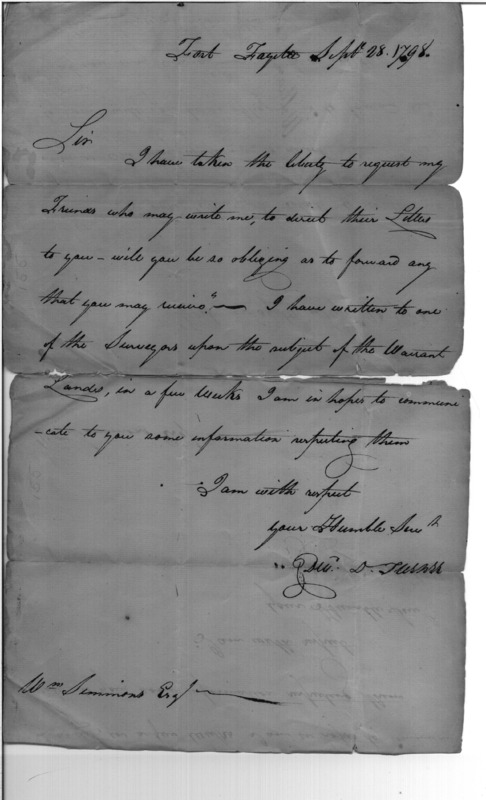 Fort Fayette Sept. 28. 1798.
Sir
I have taken the liberty to request my
Friends who may write me, to direct their Letters
to you – will you be so obliging as to forward any
that you may receive. — I have written to one
of the Surveyors upon the subject of the Warrant
Lands, in a few weeks I am in hopes to communi
-cate to you some information respecting them
I am with respect
your Humble Servt
Edw. D. Turner
Wm Simmons Esqr